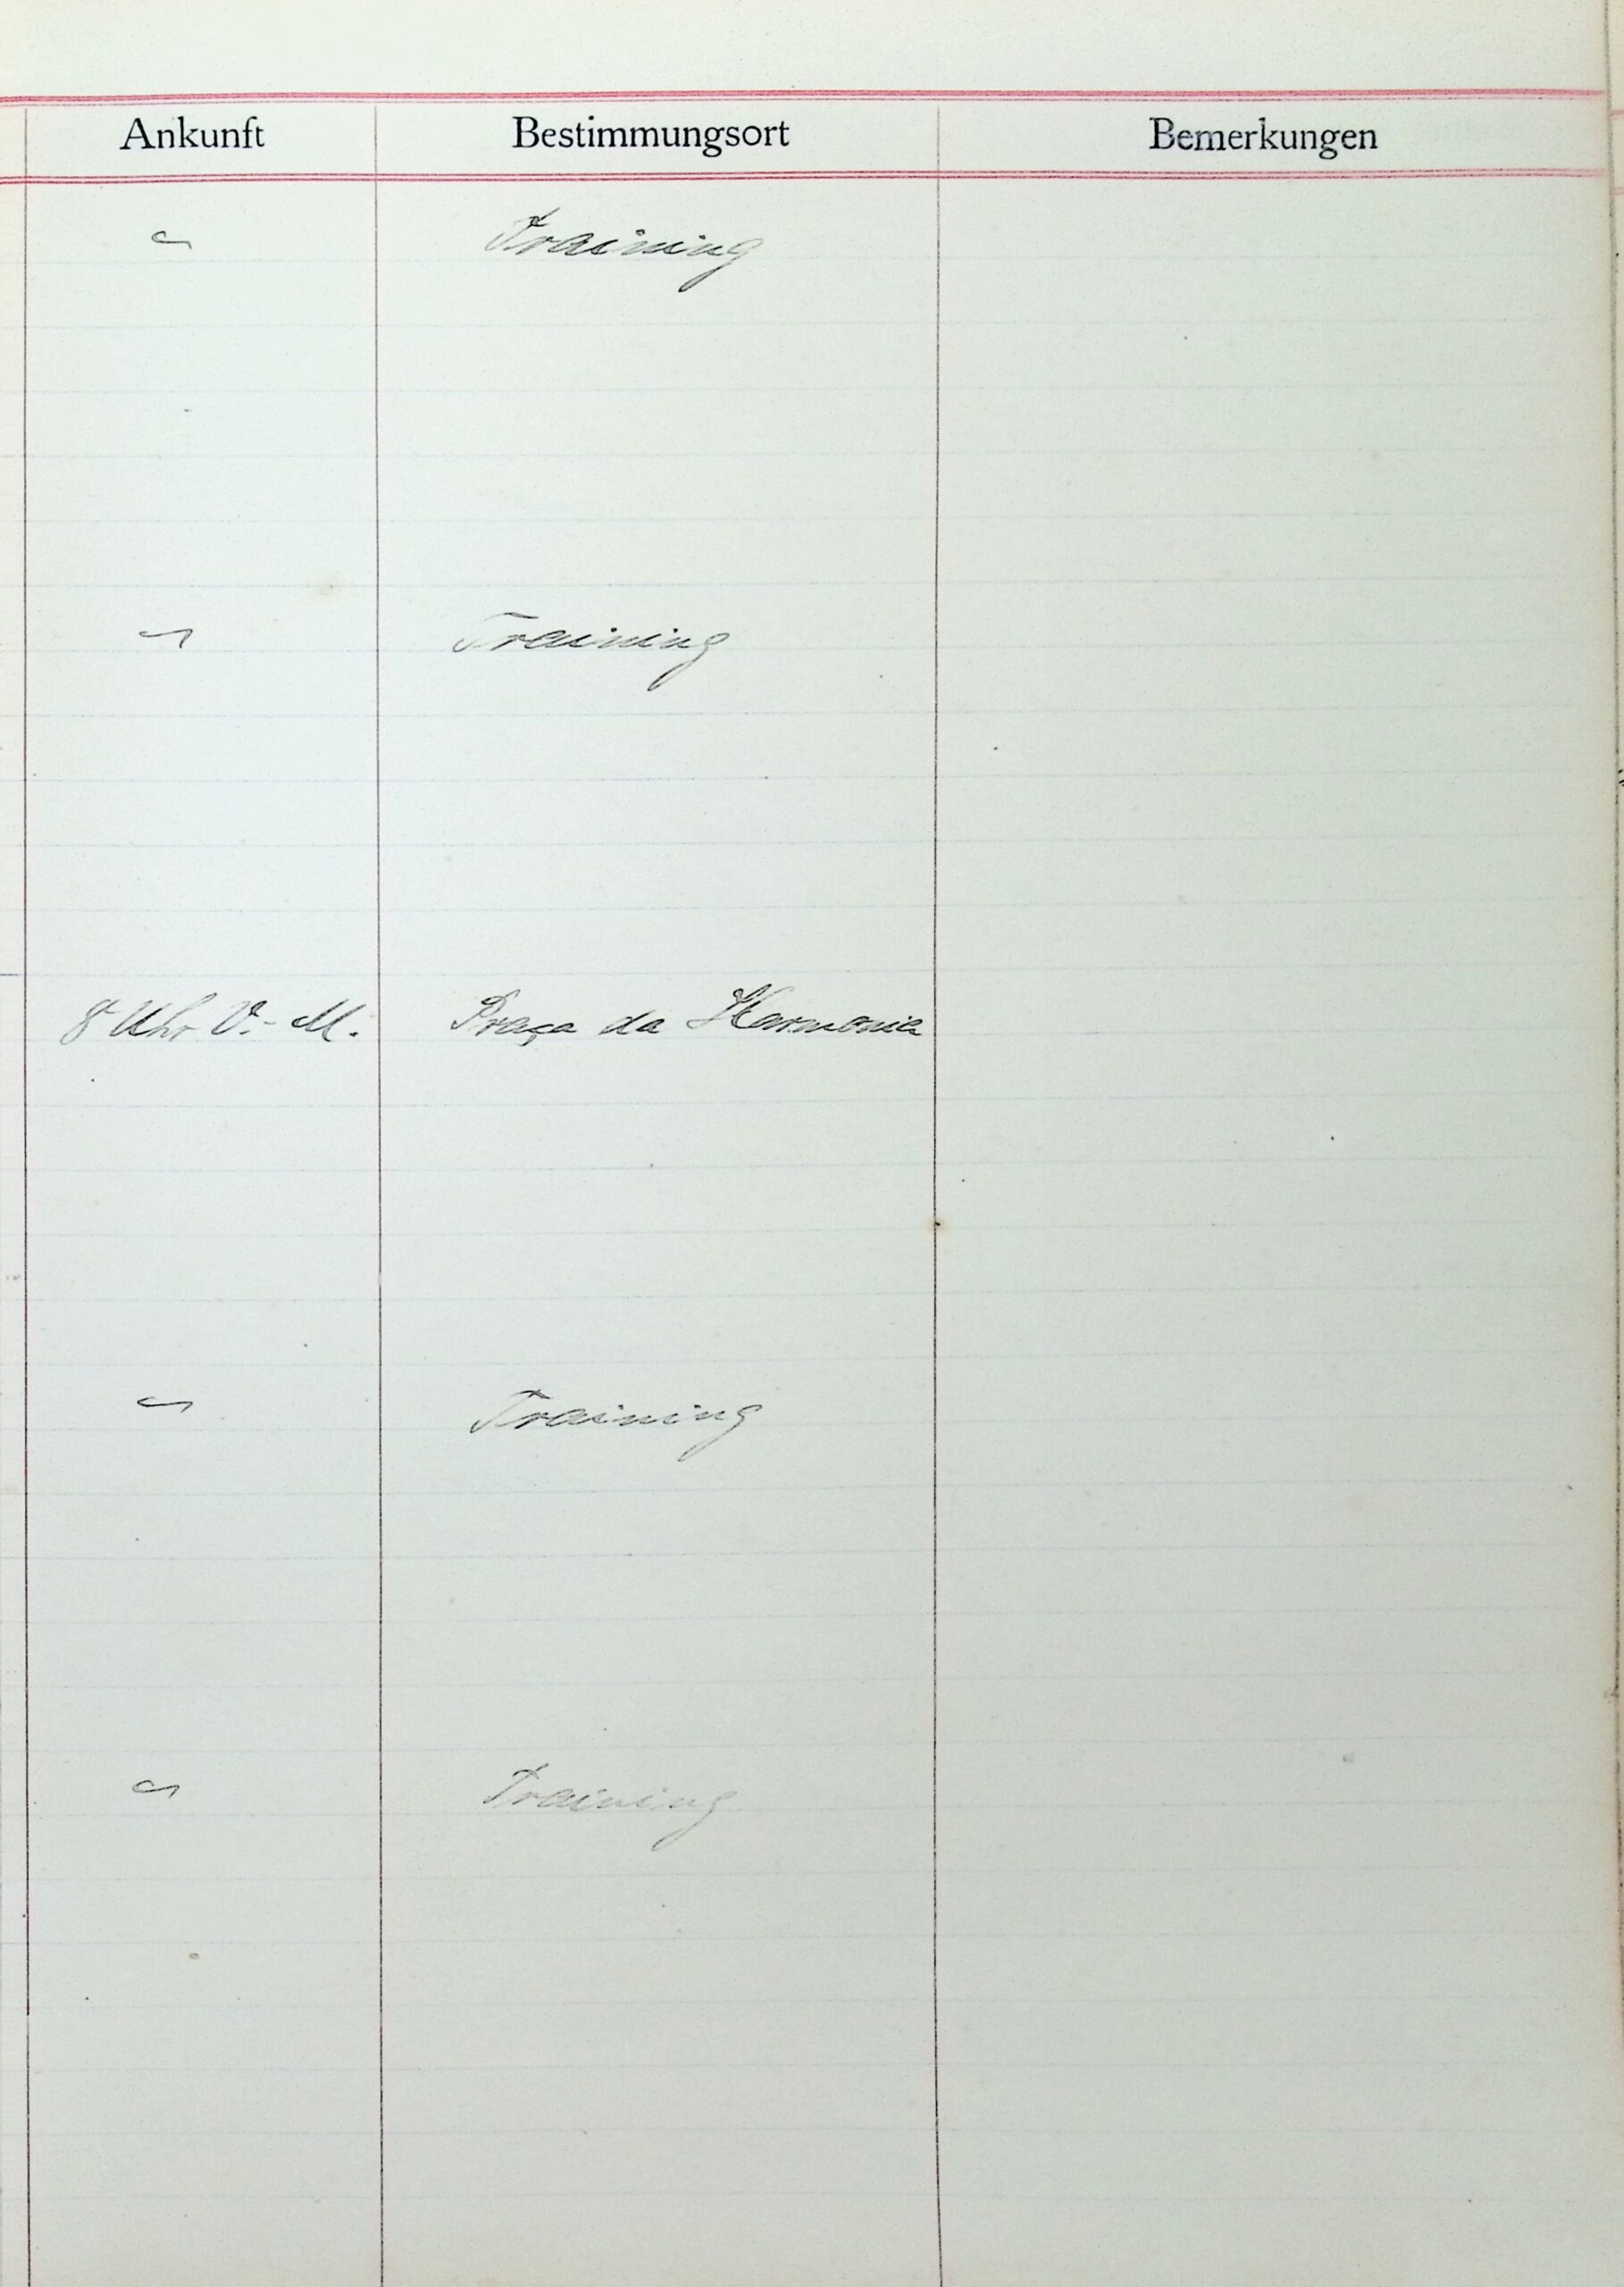 Ankunft Bestimmungsort Bemerkungen
~ Training
~ Training
8 Uhr V.-M. Praça da Harmonia
~ Training
~ Training